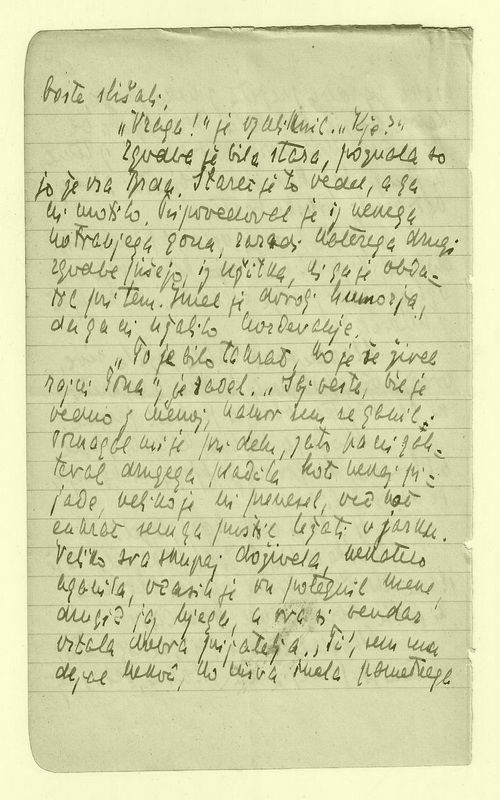 boste slišali.
„Vraga!“ je vzkliknil. „Kje?“
Zgodba je bila stara, poznala so
jo že vsa Brda. Starec je to vedel, a ga
ni motilo. Pripovedoval je iz nekega
notranjega gona, zaradi katerega drugi
zgodbe pišejo, iz užitka, ki ga je obda-
jal pri tem. Imel je dovolj humorja,
da ga ni užalilo
„To je bilo takrat, ko je še živel
rajni Tona“, je začel. „Saj veste, bil je
vedno z menoj, kamor sem se ganil.
Pomagal mi je pri delu, zato pa ni zah-
teval drugega plačila kot nekaj pi-
jače, veliko je ni prenesel, več kot
enkrat sem ga pustil ležati v jarku.
Veliko sva skupaj doživela, nekatero
ugnala, včasih je on potegnil mene,
drugič jaz njega, a sva si vendar
ostala dobra prijatelja. „Ti“, sem mu
dejal nekoč, ko nisva imela pametnega